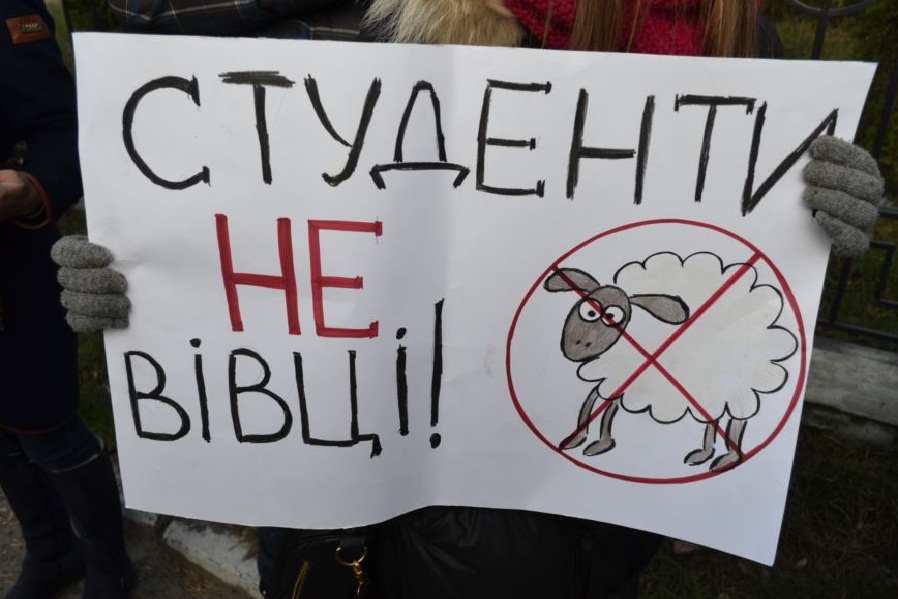 СТУДЕНТИ
НЕ
ВІВЦІ!